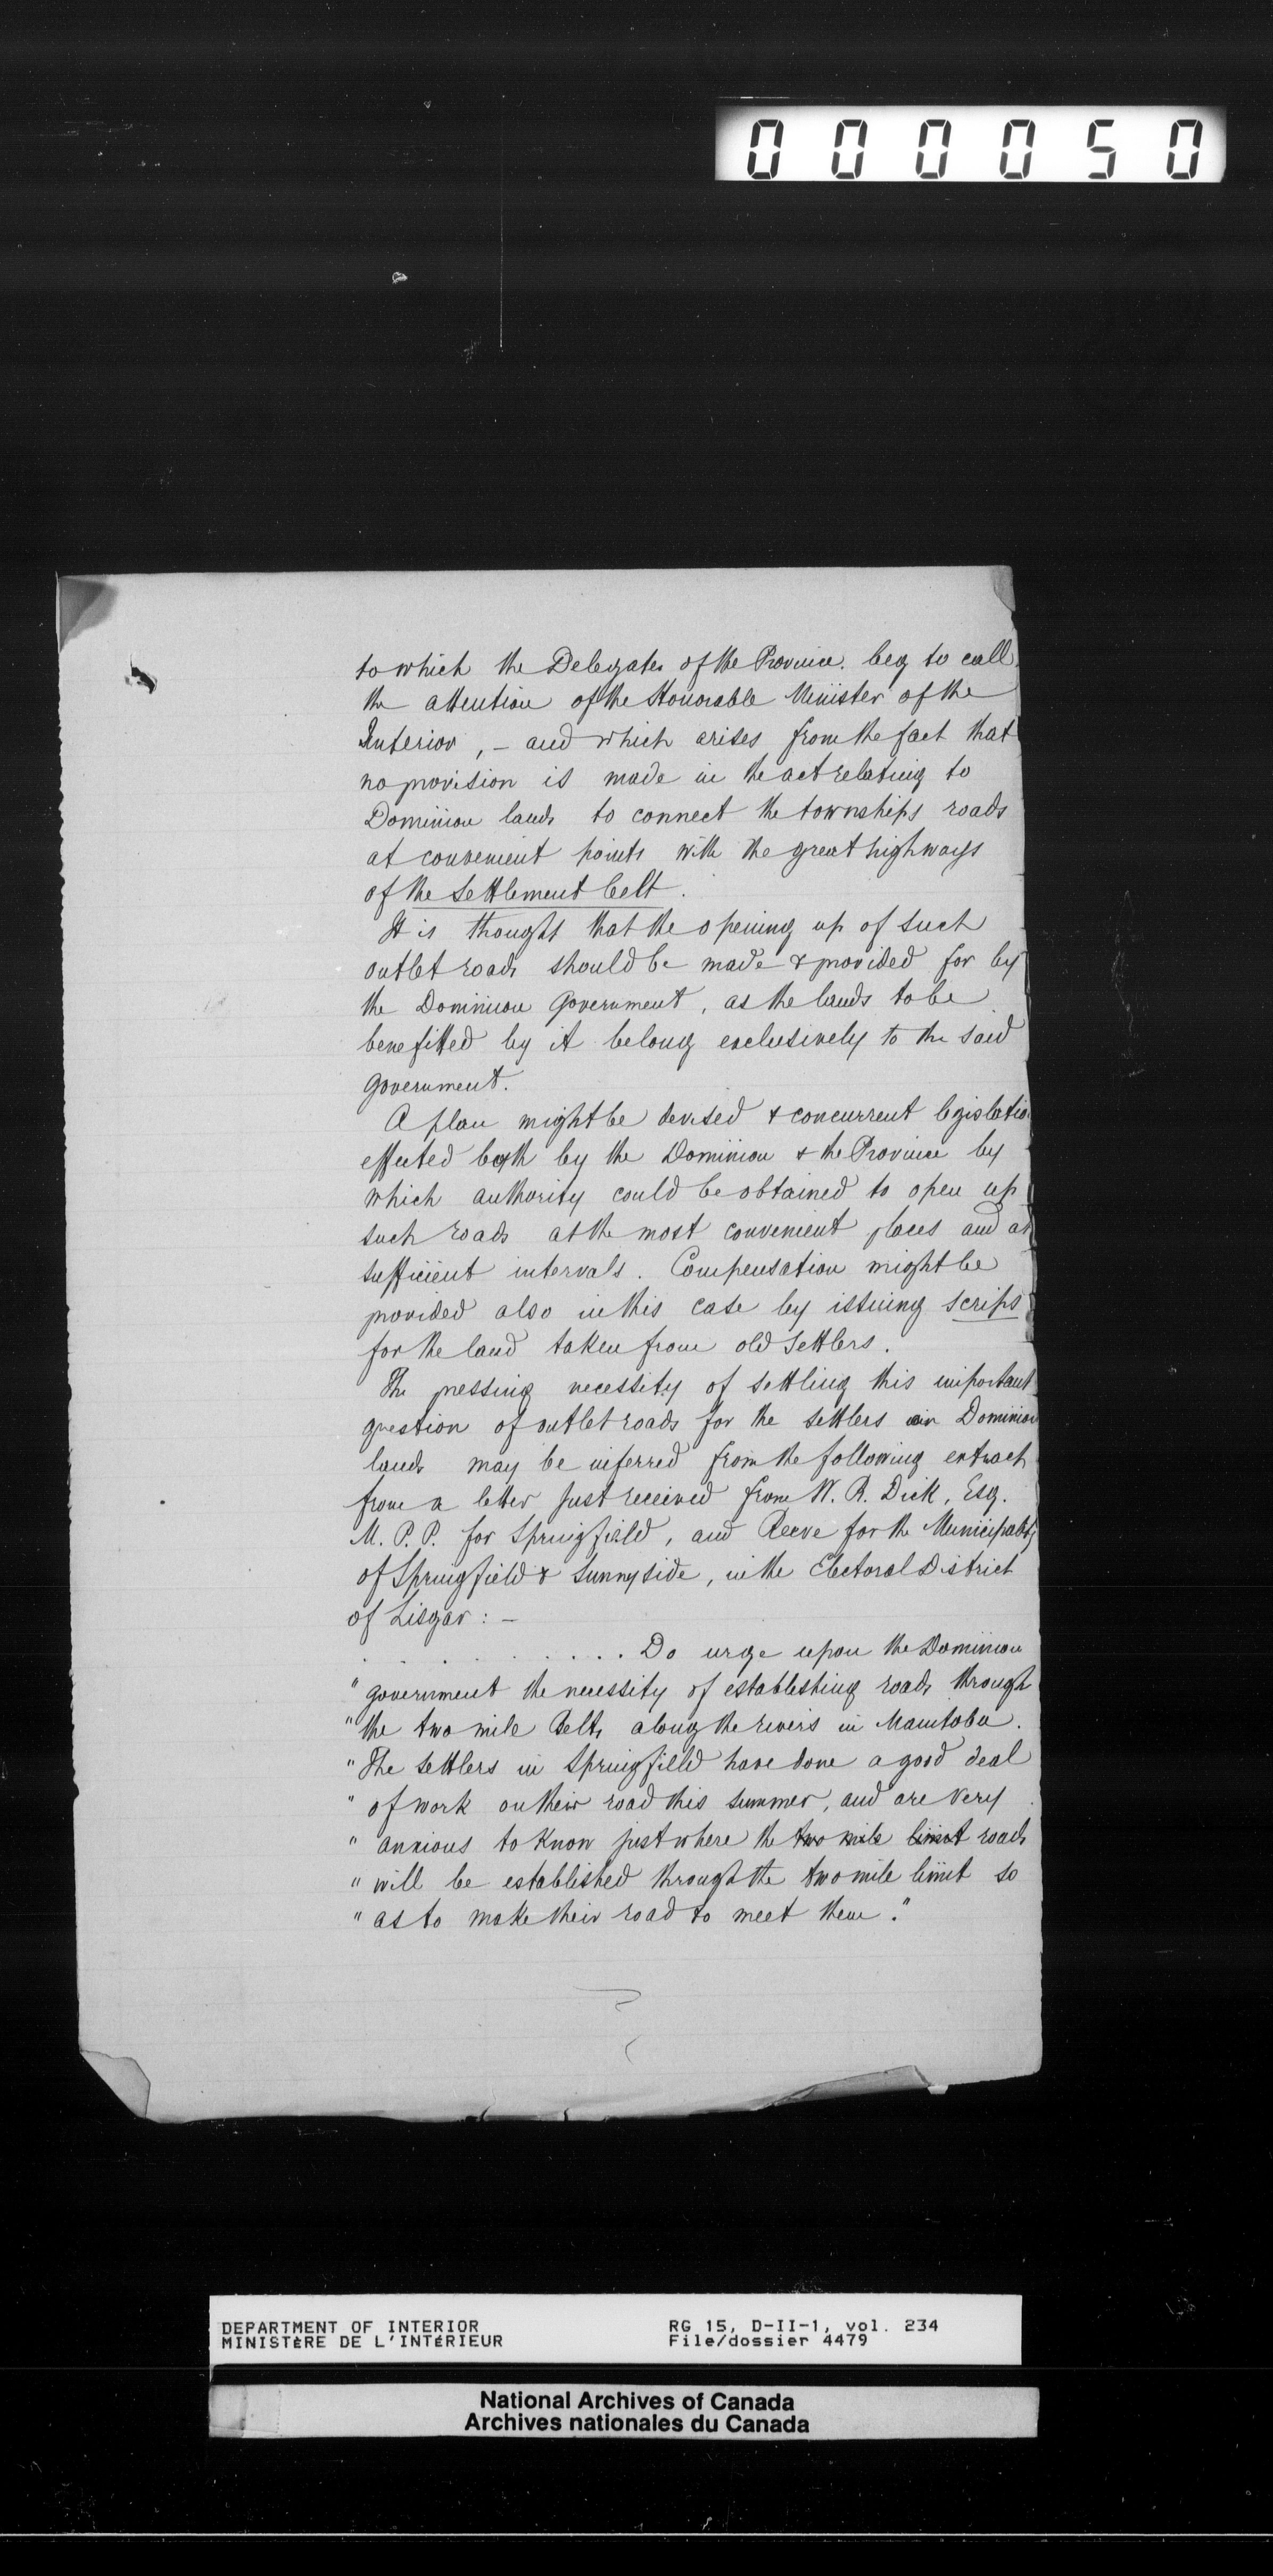 000050
to which the Delegates of the Province. beg to call
the attention of the Honorable Minister of the
Interior, – and which arises from the fact that
no provision is made in the act relating to
Dominion lands to connect the townships roads
at convenient points with the great highways
of the Settlement belt.
It is thought that the opening up of such
outlet roads should be made & provided for by
the Dominion Government, as the lands to be
benefitted by it belong exclusively to the said
Government.
A plan might be devised & concurrent legislatio
effected both by the Dominion & the Province by
which authority could be obtained to open up
such roads at the most convenient places and at
sufficient intervals. Compensation might be
provided also in this case by issuing scrips
for the land taken from old settlers.
The pressing necessity of settling this important
question of outlet roads for the settlers in Dominion
lands may be inferred from the following extract
from a letter just received from W. R. Dick, Esq.
M. P. P. for Springfield, and Reeve for the Municipality
of Springfield & Sunnyside, in the Electoral District
of Lisgar: –
. . . . . . . . . . Do urge upon the Dominion
" government the necessity of establishing roads through
" the two mile Belts along the rivers in Manitoba.
" The settlers in Springfield have done a good deal
" of work on their road this summer, and are very
" anxious to know just where the two mile limit roads
" will be established through the two mile limit so
" as to make their road to meet them."
DEPARTMENT OF INTERIOR RG 15, D-II-1, vol. 234
MINISTÈRE DE L'INTÉRIEUR File/dossier 4479
National Archives of Canada
Archives nationales du Canada